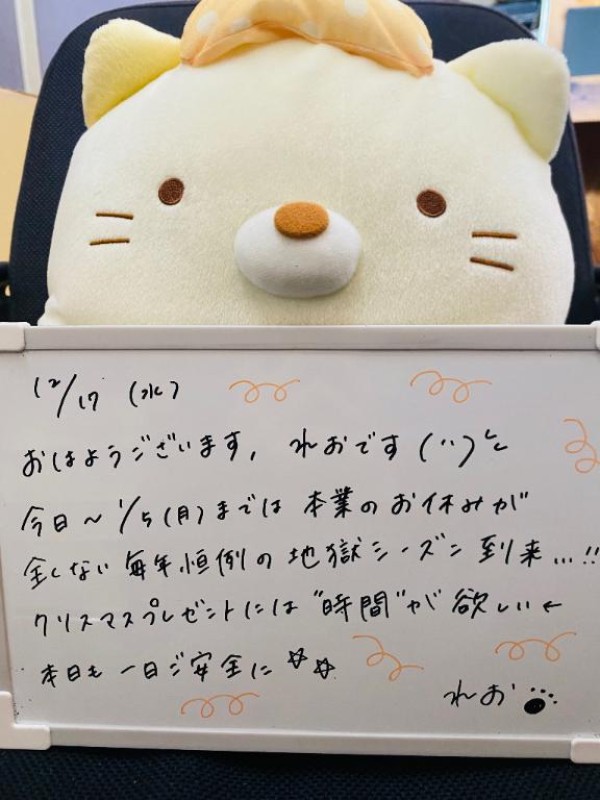 12/17 (水)
おはようございます, れおです(¨)
今日～1/5(月)までは 本業のお休みが
全くない毎年恒例の地獄シーズン到来...!!
クリスマスプレゼントには"時間"が欲しい←
本日も一日ご安全に☆☆
れお